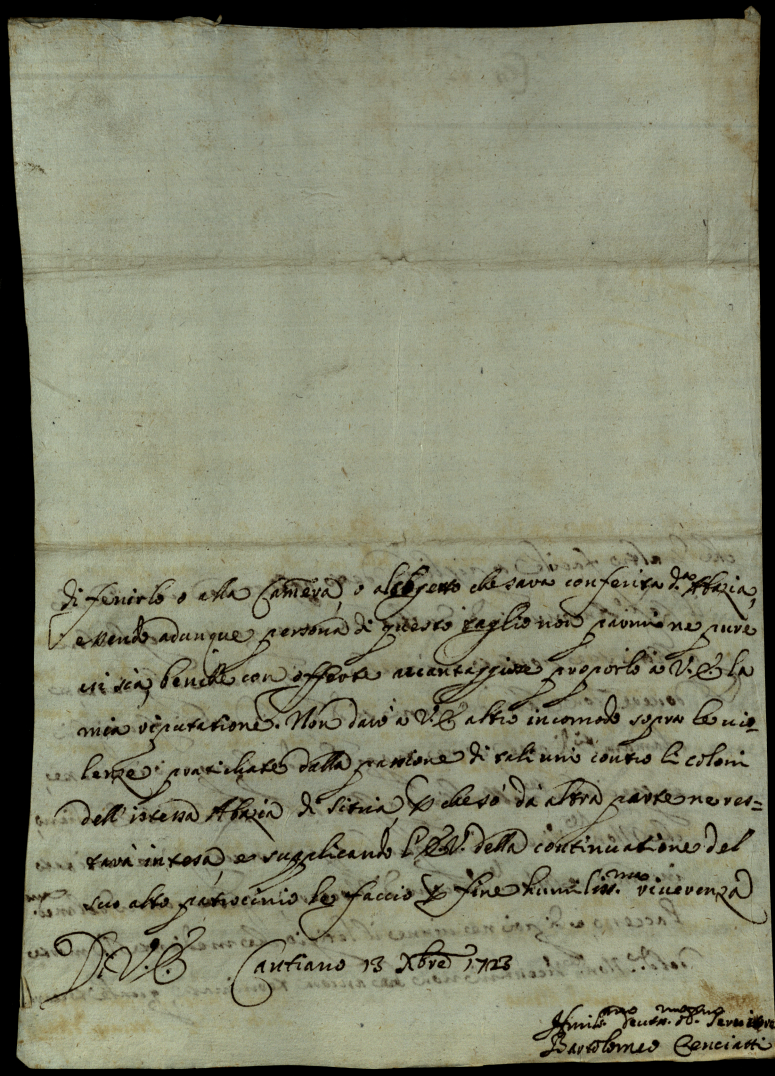 di fenirlo o alla Camera, o al sogetto che sara conferita d.ª Abazia,
e vendo adunque persona di questo taglio non parmi ne pure
vi sia, benche con offerte avantaggiose proporlo à V. E. la
mia riputatione. Non darò a V. E. altro incomodo sopra le vio-
lenze praticate dalla passione di tal'uni contro li coloni
dell'istessa Abazia di Sitria, che sò dà altra parte ne res-
tarà intesa, e supplicando l'E. V. della continuatione del
suo alto patrocinio le faccio p fine humiliss.ma riverenza
D. V. E. Cantiano 13 Xbre 1723
Humil.mo Devot.mo Servitore
Bartolomeo Cenciatti